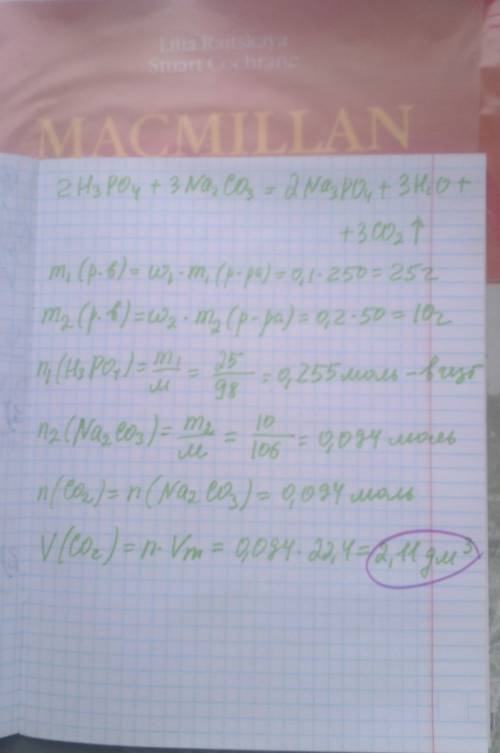 Lilia Raitskaya
Stuart Cochrane
MACMILLAN
2H₃PO₄ + 3Na₂CO₃ = 2Na₃PO₄ + 3H₂O +
+ 3CO₂↑
m₁(р.в) = ω₁ · m₁(р-ра) = 0,1 · 250 = 25г
m₂(р.в) = ω₂ · m₂(р-ра) = 0,2 · 50 = 10г
n₁(H₃PO₄) = m₁/M = 25/98 = 0,255 моль – в изб
n₂(Na₂CO₃) = m₂/M = 10/106 = 0,094 моль
n(CO₂) = n(Na₂CO₃) = 0,094 моль
V(CO₂) = n · Vm = 0,094 · 22,4 = 2,11 дм³